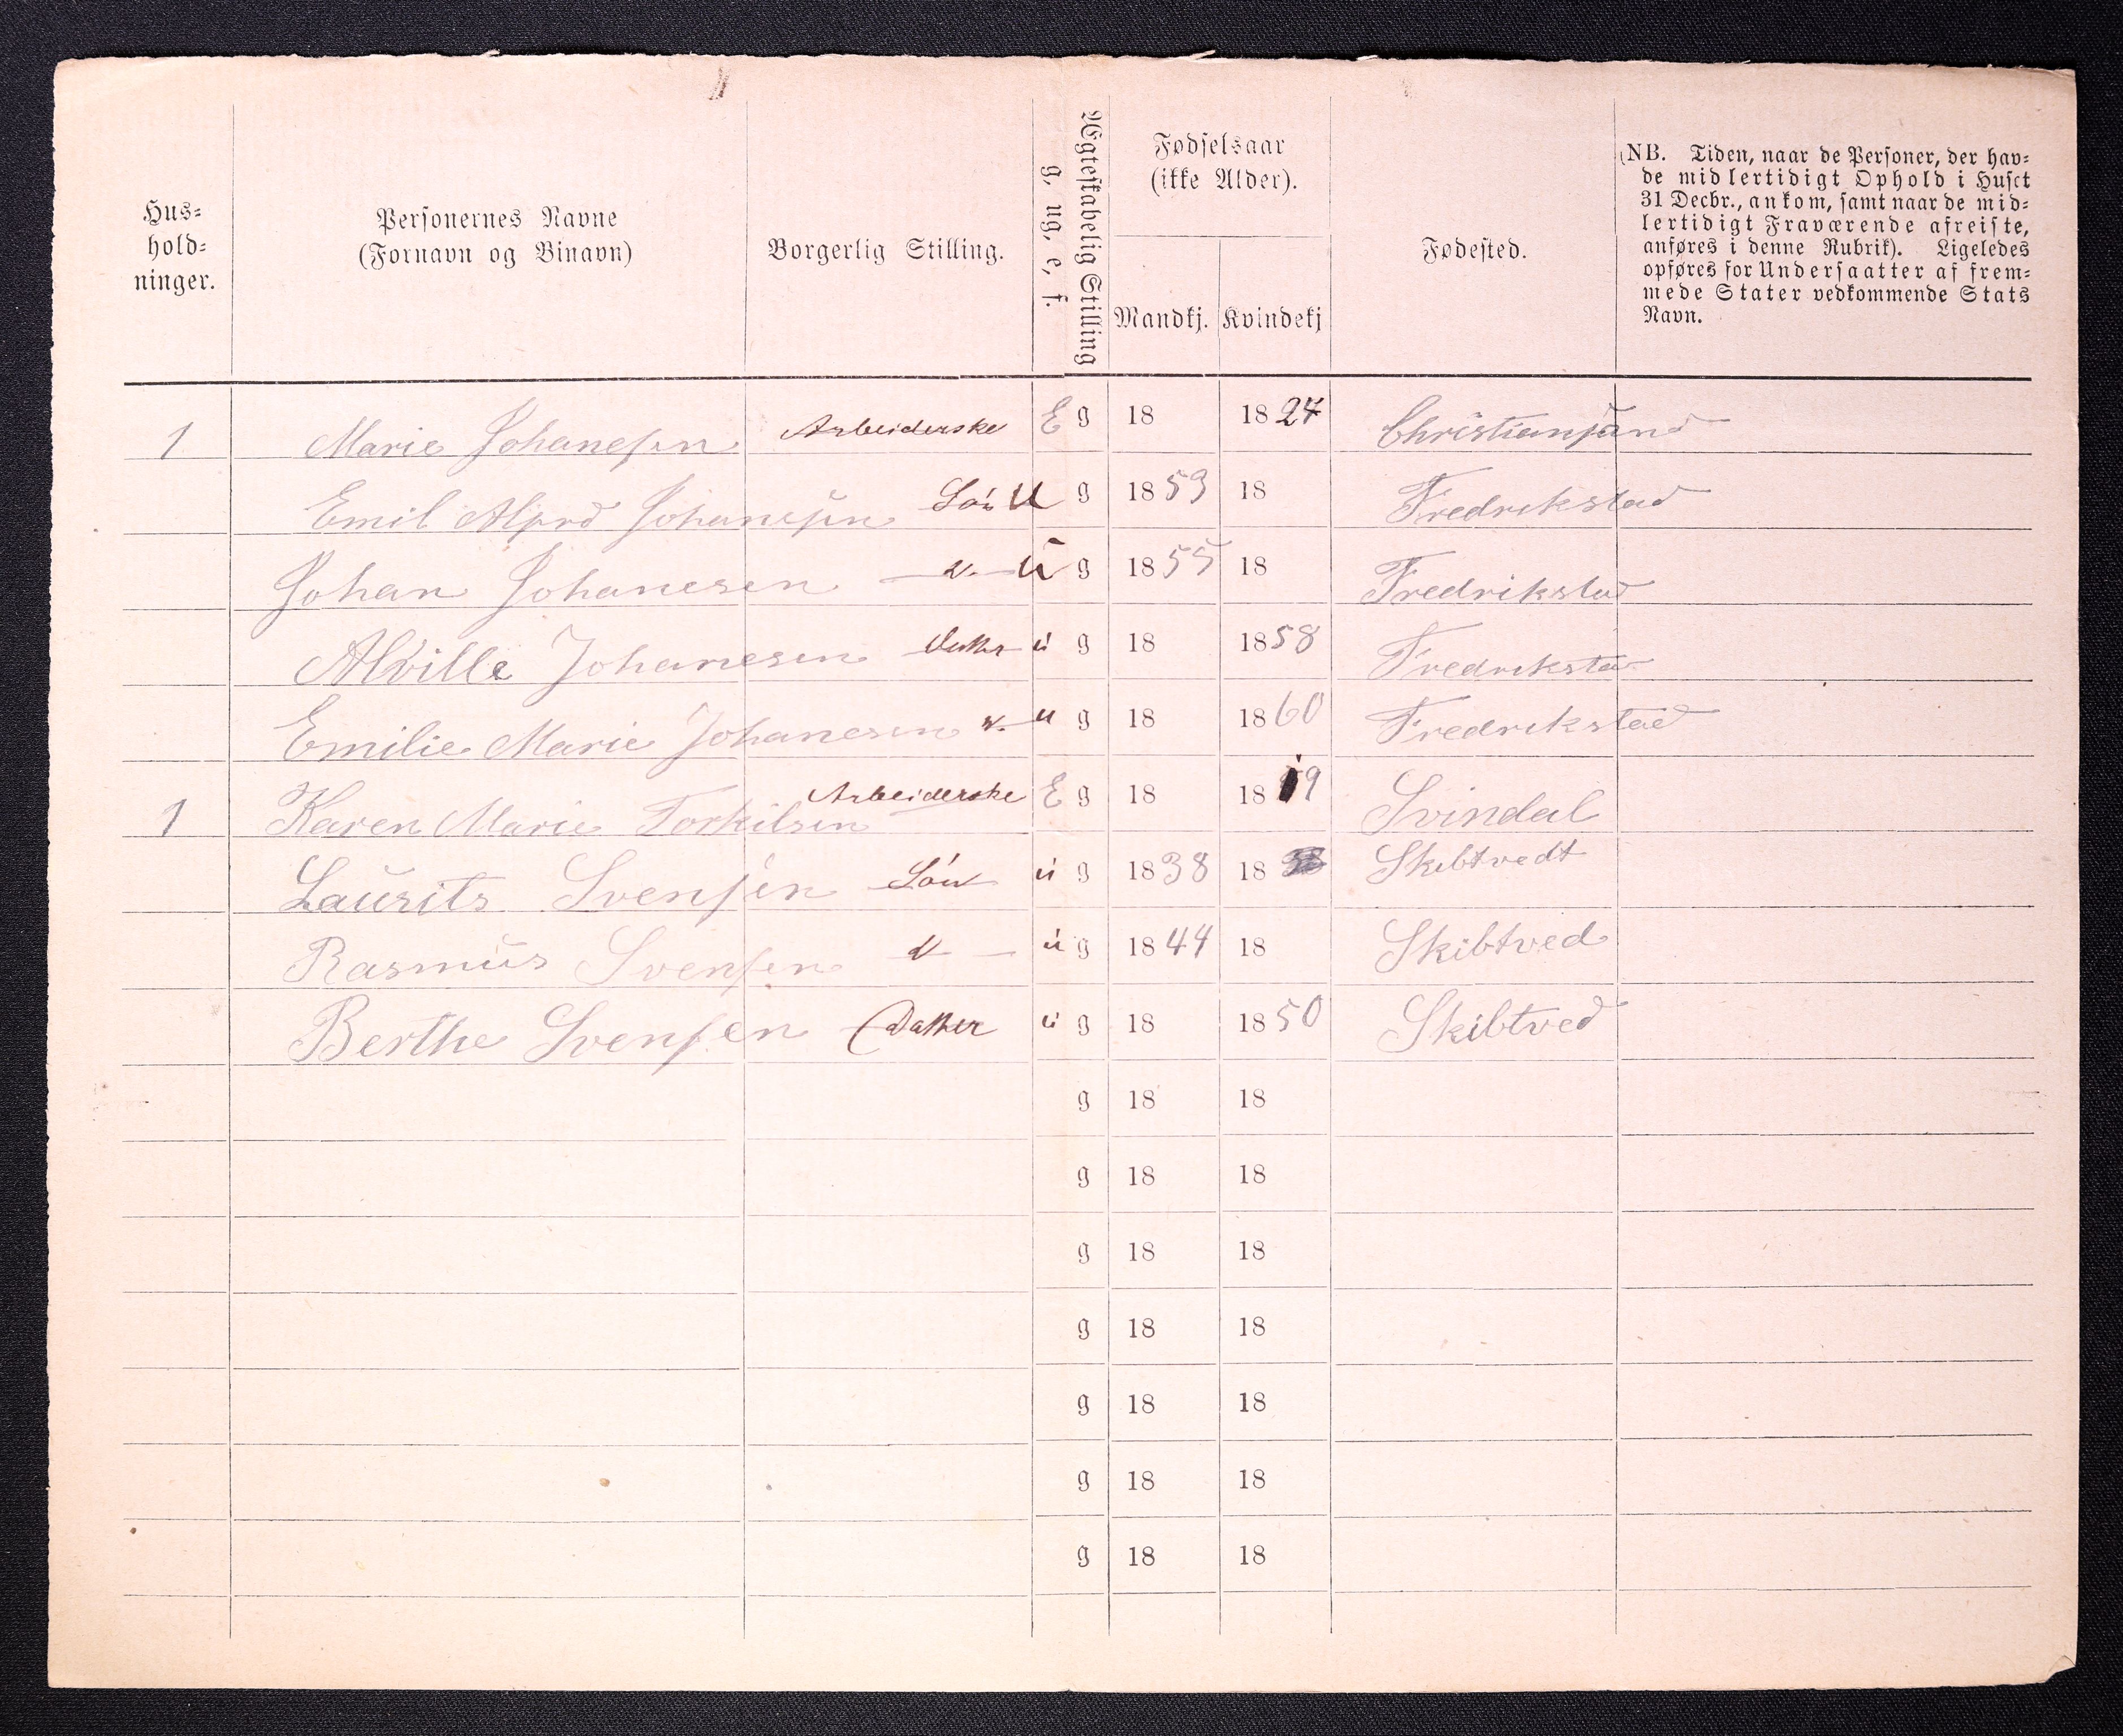 Hus=
hold=
ninger.
Personernes Navne
(Fornavn og Binavn)
Borgerlig Stilling.
Ægteskabelig Stilling
g, ug, e, f.
Fødselsaar
(ikke Alder).
Mandkj. Kvindekj
Fødested.
(NB. Tiden, naar de Personer, der hav=
de midlertidigt Ophold i Huset
31 Decbr., ankom, samt naar de mid=
lertidigt Fraværende afreiste,
anføres i denne Rubrik). Ligeledes
opføres for Undersaatter af frem=
mede Stater vedkommende Stats
Navn.
1 Marie Johanesen Arbeiderske E g 18 1824 Christiansand
Emil Alfred Johanesen Søn u g 1853 18 Fredrikstad
Johan Johanesen — d. — u g 1855 18 Fredrikstad
Alville Johanesen Datter u g 18 1858 Fredrikstad
Emilie Marie Johanesen d. — u g 18 1860 Fredrikstad
1 Karen Marie Torkilsen Arbeiderske E g 18 1819 Svindal
Laurits Svensen Søn u g 1838 18 Skibtvedt
Rasmus Svensen d — u g 1844 18 Skibtved
Berthe Svensen Datter u g 18 1850 Skibtved
g 18 18
g 18 18
g 18 18
g 18 18
g 18 18
g 18 18
g 18 18